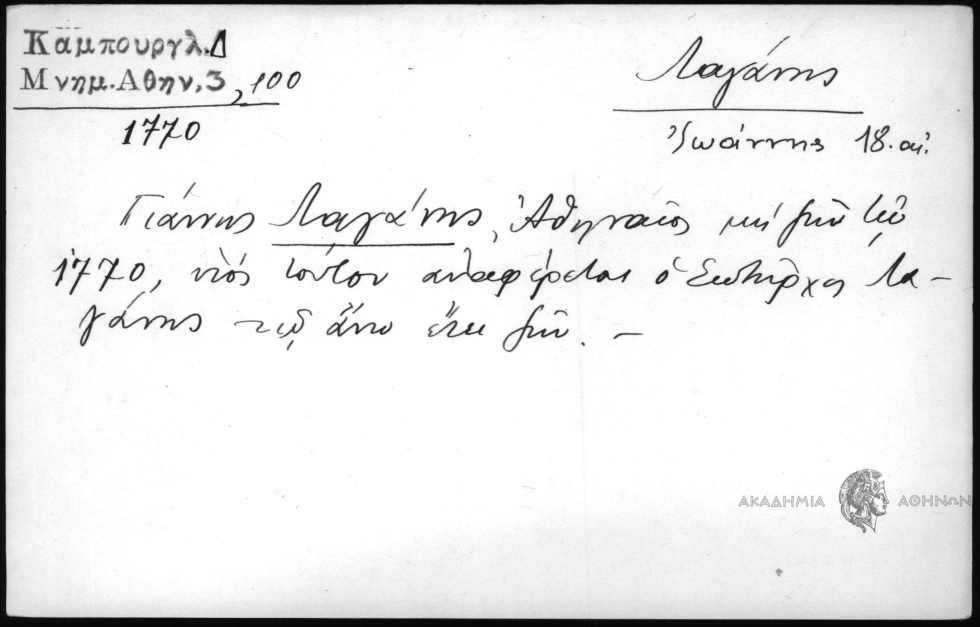 Καμπουργλ.Δ
Μνημ.Αθην,3, 100
1770
Λαγάνης
Ἰωάννης 18. αἰ.
Γιάννης Λαγάνης, Ἀθηναῖος μή ζῶν τῷ
1770, υἱός τούτου ἀναφέρεται ὁ Σωτήρχος Λα-
γάνης τῷ ἄνω ἔτει ζῶν. –
ΑΚΑΔΗΜΙΑ ΑΘΗΝΩΝ